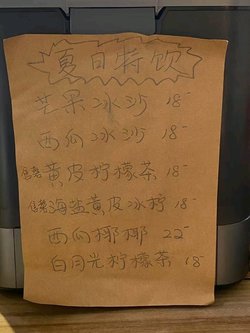 夏日特饮
芒果冰沙 18-
西瓜冰沙 18-
黄皮柠檬茶 18-
海盐黄皮冰柠 18-
西瓜椰椰 22-
白月光柠檬茶 18-